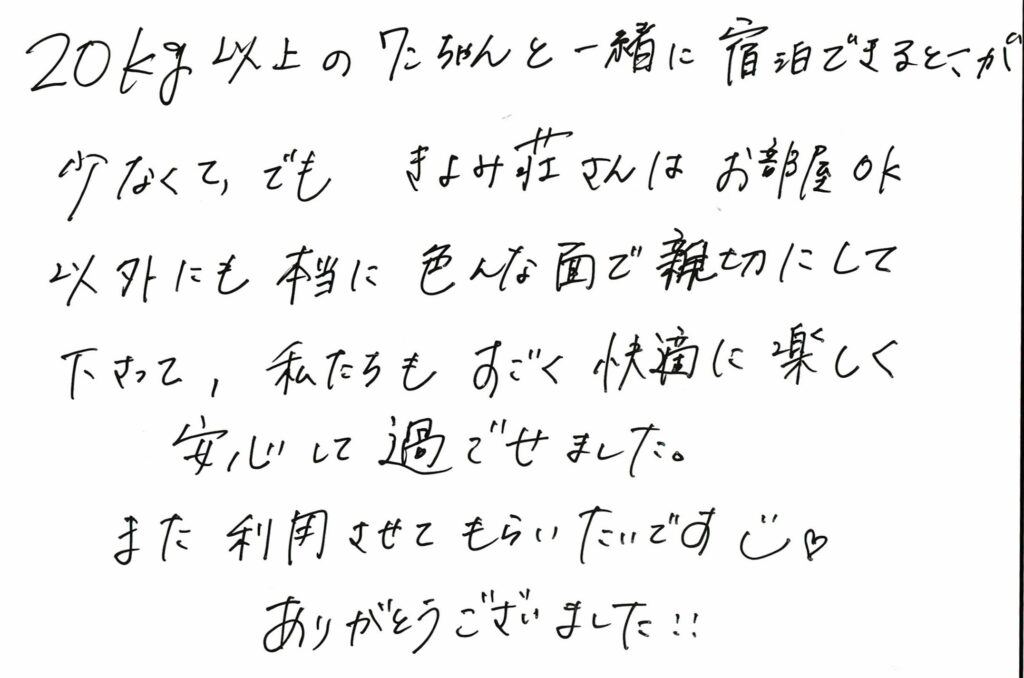 20kg以上のワンちゃんと一緒に宿泊できるとこが
少なくて、でも きよみ荘さんはお部屋OK
以外にも本当に色んな面で親切にして
下さって、私たちもすごく快適に楽しく
安心して過ごせました。
また利用させてもらいたいです ♡
ありがとうございました!!